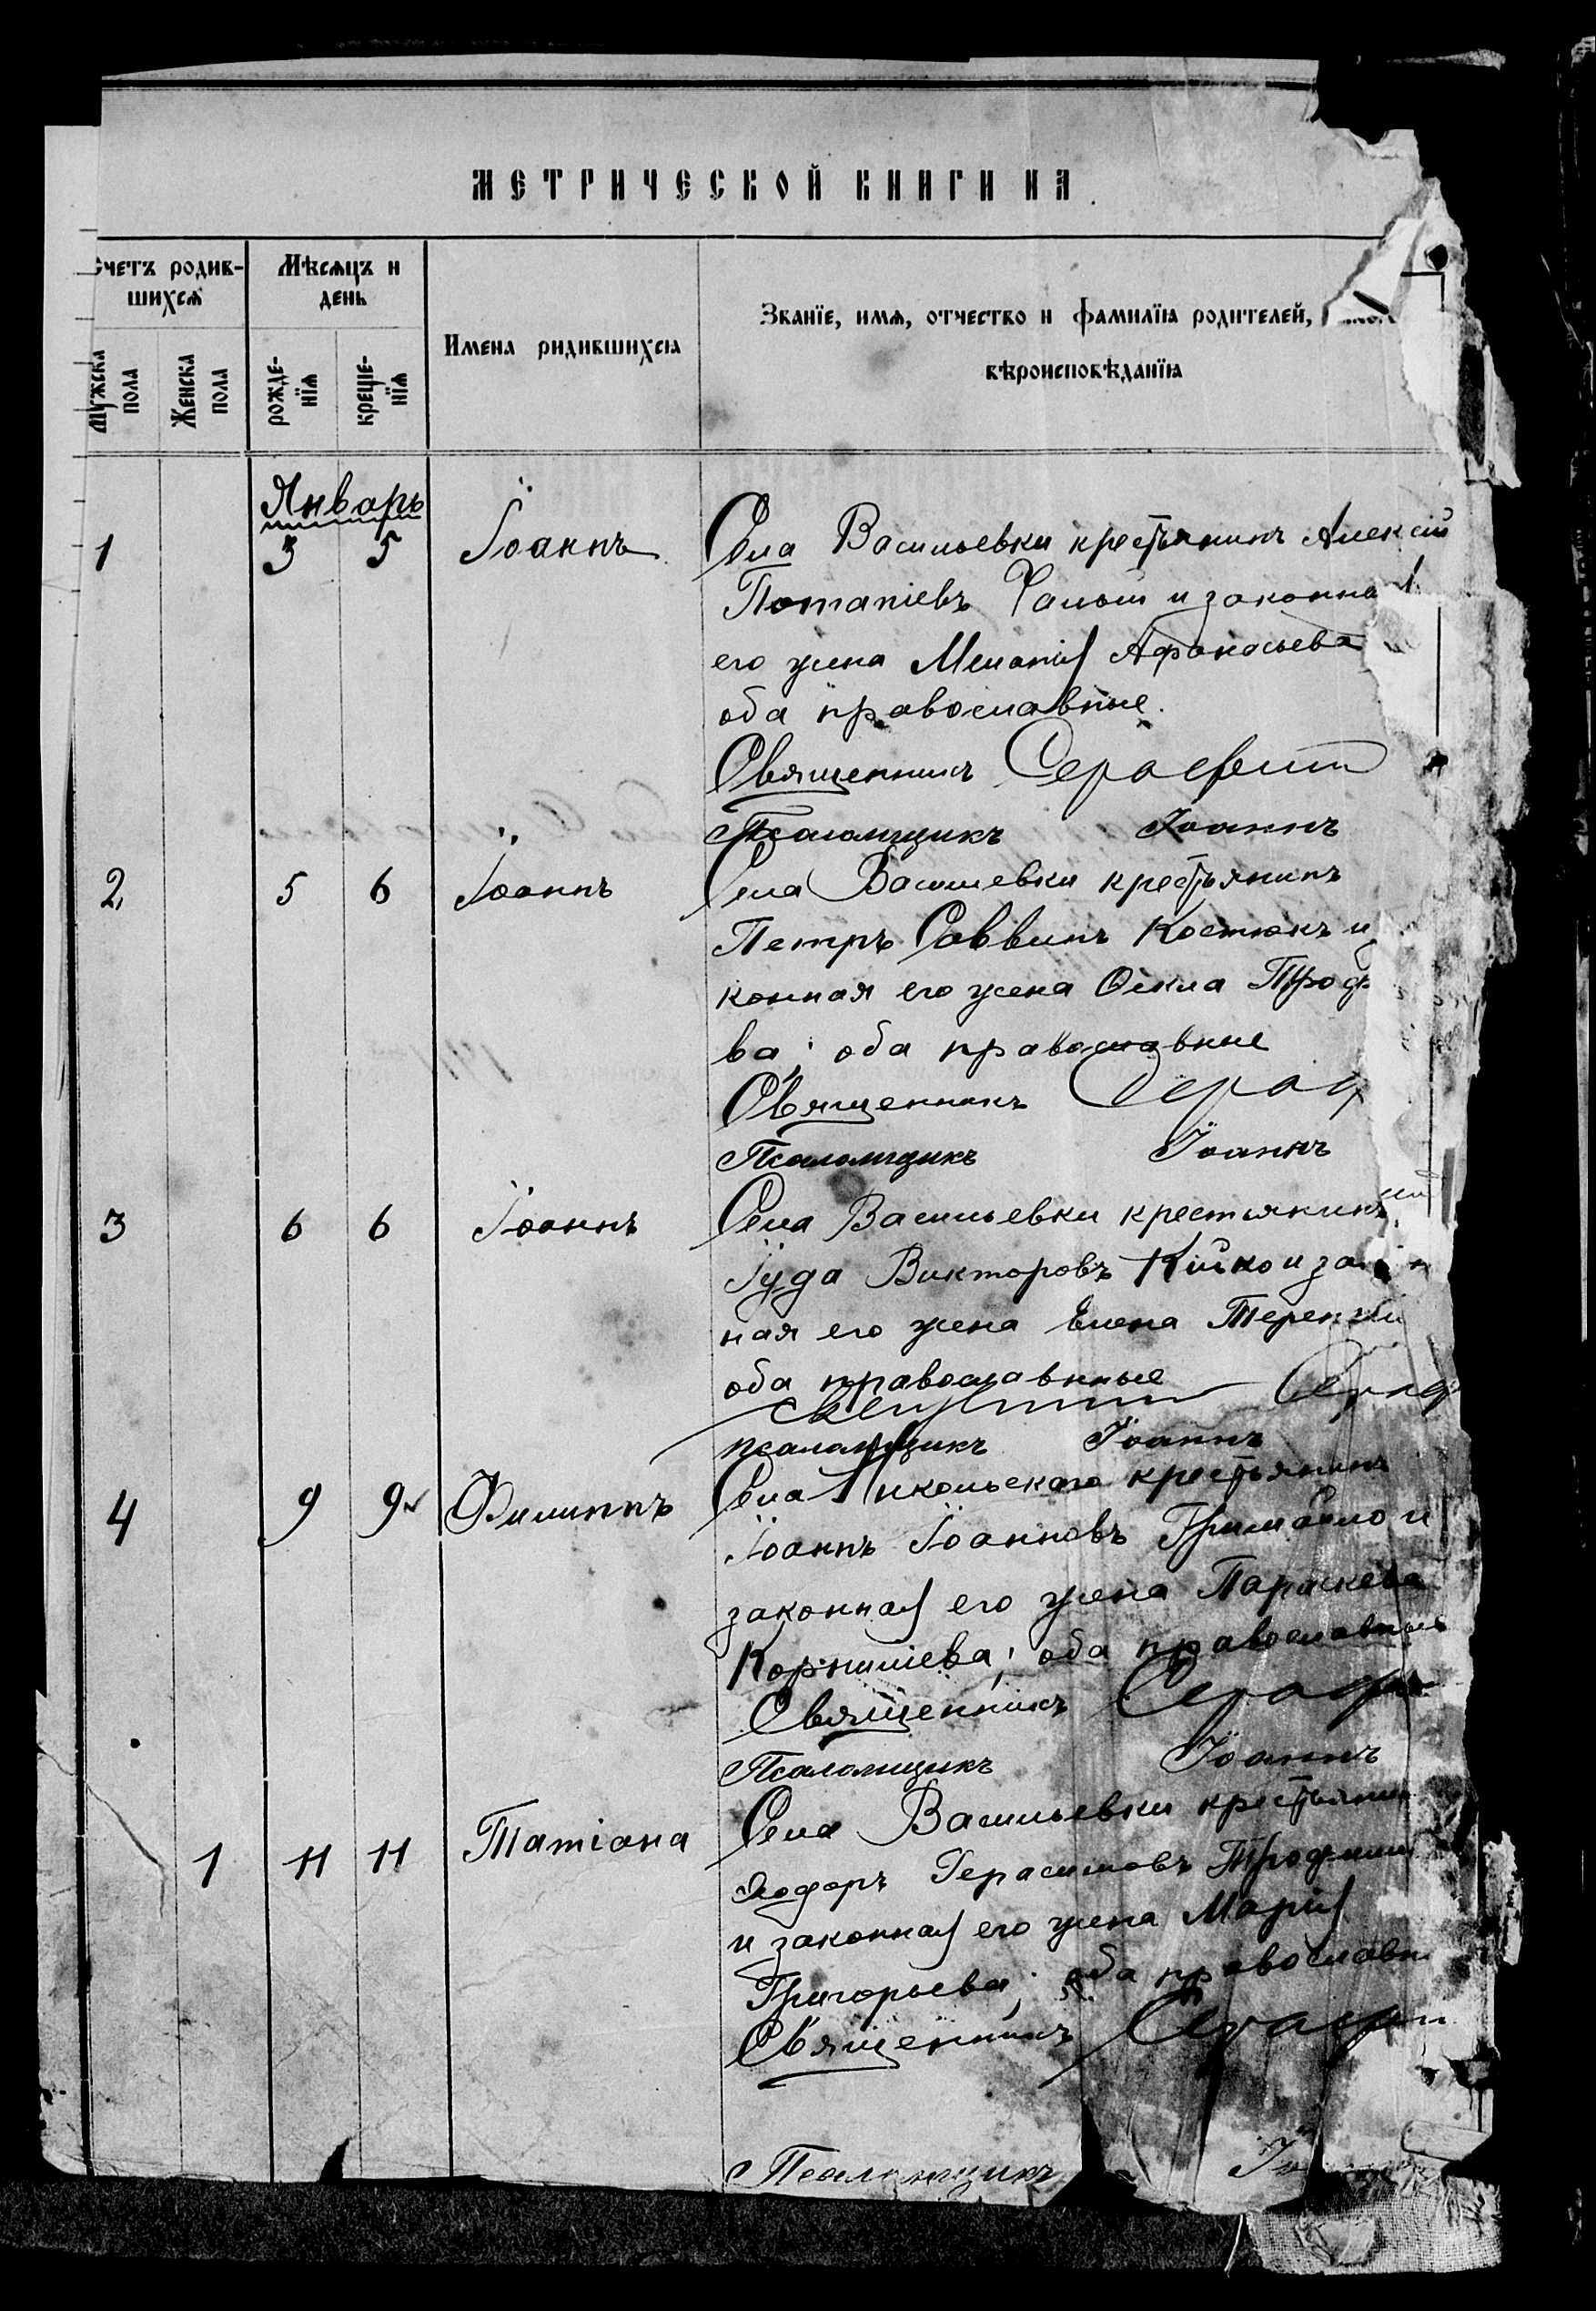 МЕТРИЧЕСКОЙ КНИГИ НА
Счетъ родив-
шихсѧ
Мѣсѧцъ и
день
Имена родившихсѧ
Званїе, имѧ, отчество и фамилїѧ родителей,
вѣроисповѣданїѧ
Мужска
пола
Женска
пола
рожде-
нїѧ
креще-
нїѧ
Январь
1 3 5 Іоаннъ Села Васильевки крестьянинъ Алексій
Потапіевъ Чалый и законна
его жена Меланія Афанасьева
оба православные.
Священникъ Серафим
Псаломщикъ Іоаннъ
2 5 6 Іоаннъ Села Васильевки крестьянинъ
Петръ Саввинъ Костюкъ и
конная его жена Ѳекла Троф
ва; оба православные
Священникъ Сераф
Псаломщикъ Іоаннъ
3 6 6 Іоаннъ Села Васильевки крестьянинъ
Іуда Викторовъ Кійко и за
ная его жена Елена Теренті
оба православные
Священникъ Сераф
псаломщикъ Іоаннъ
4 9 9 Филиппъ Села Никольскаго крестьянинъ
Іоаннъ Іоанновъ и
законная его жена Параскева
Корниліева; оба православные
Священникъ Сераф
Псаломщикъ Іоаннъ
1 11 11 Татіана Села Васильевки крестьянин
Ѳеодоръ Герасимовъ
и законная его жена Марія
Григорьева; оба православн
Священникъ Серафи
Псаломщикъ Іо